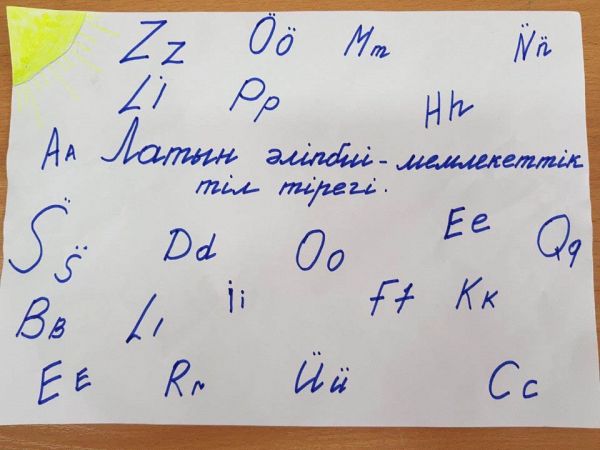 Zz Öö Mm N̈n̈
Lï Pp Hh
Aa Латын әліпбиі - мемлекеттік
тіл тірегі.
S̈s̈ Dd Oo Ee Qq
Bв Lı İi Ff Kк
Eе Rr Üü Cc